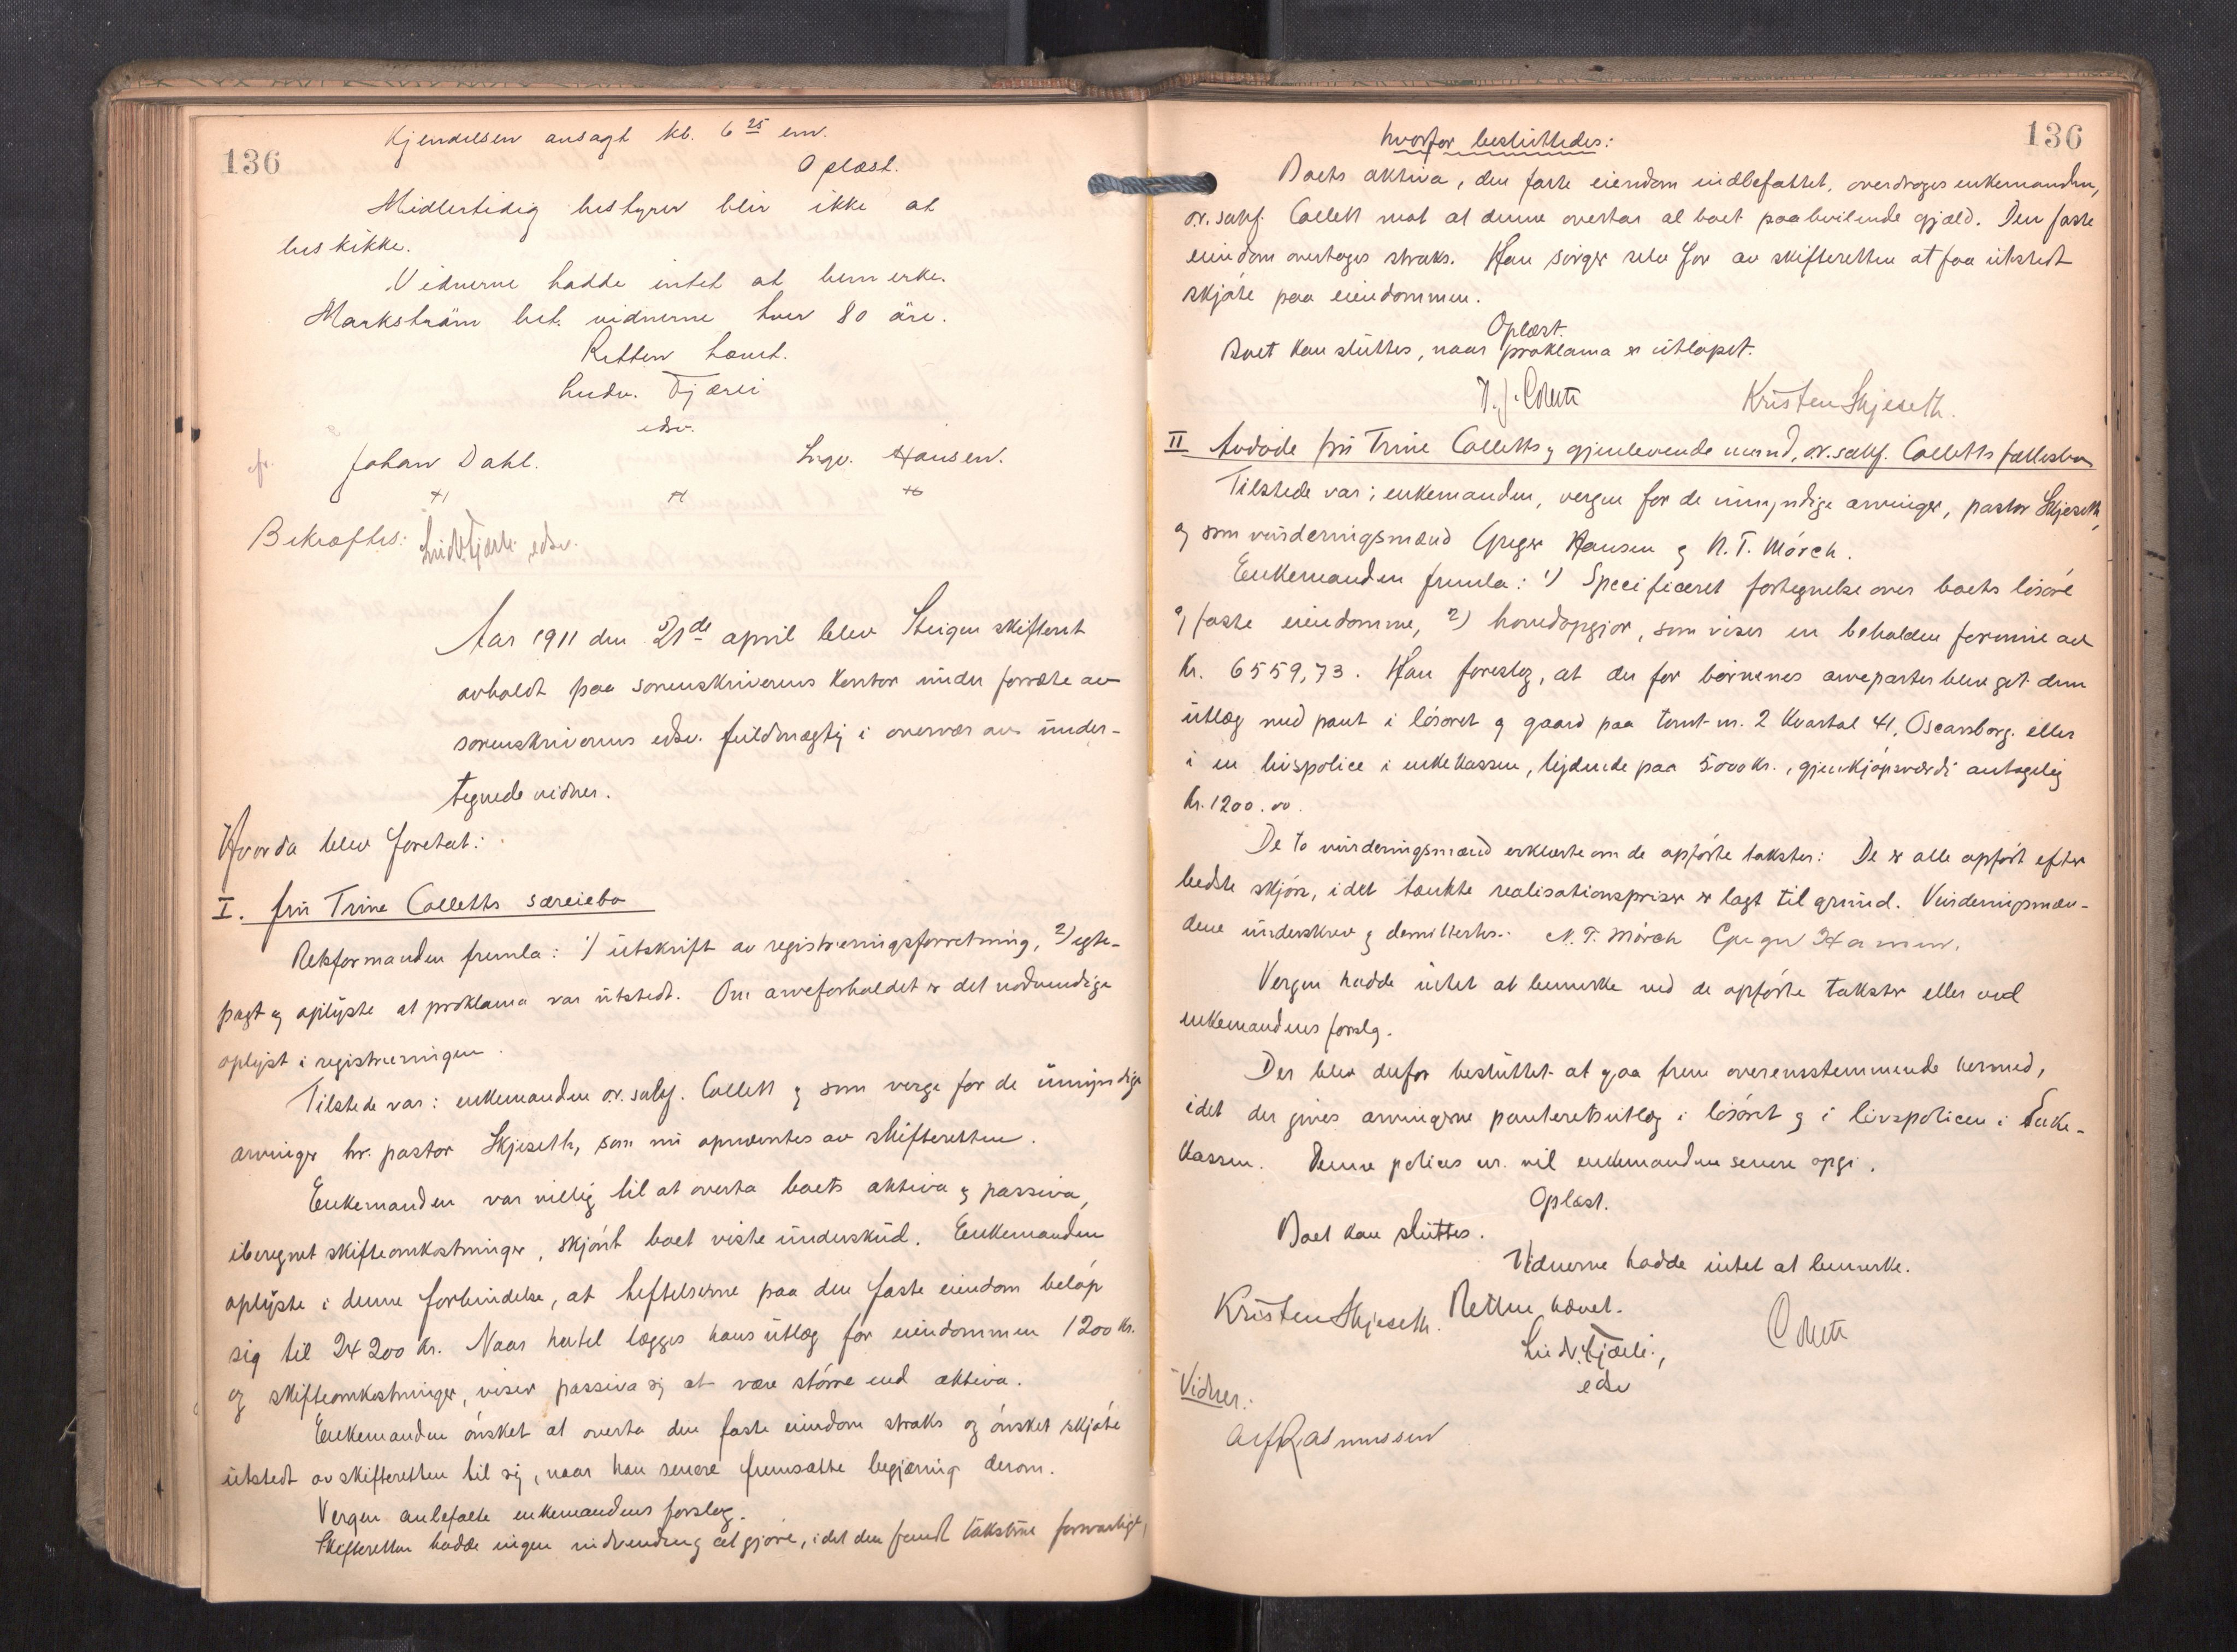 136
Kjendelsen avsagt kl. 6 25 em.
Oplæst.
Midlertidig bestyrer blir ikke at
beskikke.
Vidnerne hadde intet at bemerke.
Markström bet. vidnerne hver 80 öre.
Retten hævet.
Ludv. Fjærli
edsv.
Johan Dahl. Ingv. Hansen.
Bekræftes: Ludv. Fjærli edsv.
Aar 1911 den 21de april blev Steigen skifteret
avholdt paa sorenskriverens kontor under forsæte av
sorenskriverens edsv. fuldmægtig i overvær av under-
tegnede vidner.
Hvorda blev foretat:
I. fru Trine Colletts særeiebo
Rekformanden fremla: 1) utskrift av registreringsforretning, 2) egte-
pagt og oplyste at proklama var utstedt. Om arveforholdet er det nødvendige
oplyst i registreringen.
Tilstede var: enkemanden o.r. sakf. Collett og som verge for de umyndige
arvinger hr. pastor Skjeseth, som nu opnævntes av skifteretten.
Enkemanden var villig til at overta boets aktiva og passiva,
iberegnet skifteomkostninger, skjønt boet viste underskud. Enkemanden
oplyste i denne forbindelse, at heftelserne paa den faste eiendom beløp
sig til 24200 kr. Naar hertil lægges hans utlæg for eiendommen 1200 kr.
og skifteomkostninger, viser passiva sig at være større end aktiva.
Enkemanden ønsket at overta den faste eiendom straks og ønsket skjøte
utstedt av skifteretten til sig, naar han senere fremsatte begjæring derom.
Vergen anbefalte enkemandens forslag.
Skifteretten hadde ingen indvending at gjøre, idet den fandt taksterne forsvarlige,
136
hvorfor besluttedes:
Boets aktiva, den faste eiendom indbefattet, overdrages enkemanden,
o.r. sakf. Collett mot at denne overtar al boet paahvilende gjæld. Den faste
eiendom overtages straks. Han sørger selv for av skifteretten at faa utstedt
skjøte paa eiendommen.
Oplæst.
Boet kan sluttes, naar proklama er utløpet.
Collett Kristen Skjeseth.
II Avdøde fru Trine Colletts og gjenlevende mand, o.r. sakf. Colletts fællesbo
Tilstede var: enkemanden, vergen for de umyndige arvinger, pastor Skjeseth,
og som vurderingsmænd Greger Hansen og N. T. Mørch.
Enkemanden fremla: 1) Specificeret fortegnelse over boets løsøre
og faste eiendomme, 2) hovedopgjør, som viser en beholden formue av
kr. 6559,73. Han foreslog, at der for børnenes arveparter blev git dem
utlæg med pant i løsøret og gaard paa tomt nr. 2 Kvartal 41, Oscarsborg. eller
i en livspolice i enkekassen, lydende paa 5000 kr., gjenkjøpsværdi antagelig
kr. 1200.00.
De to vurderingsmænd erklærte om de opførte takster: De er alle opført efter
bedste skjøn, idet tænkte realisationspriser er lagt til grund. Vurderingsmæn-
dene underskrev og demittertes. N. T. Mörch Greger Hansen.
Vergen hadde intet at bemerke ved de opførte takster eller ved
enkemandens forslag.
Der blev derfor besluttet at gaa frem overensstemmende hermed,
idet der gives arvingerne panteretsutlæg i løsøret og i livspolicen i Enke-
kassen. Denne polices nr. vil enkemanden senere opgi.
Oplæst.
Boet kan sluttes.
Vidnerne hadde intet at bemerke.
Kristen Skjeseth. Retten hævet. Collett
Ludv. Fjærli.,
edsv
Vidner:
Alf Rasmussen